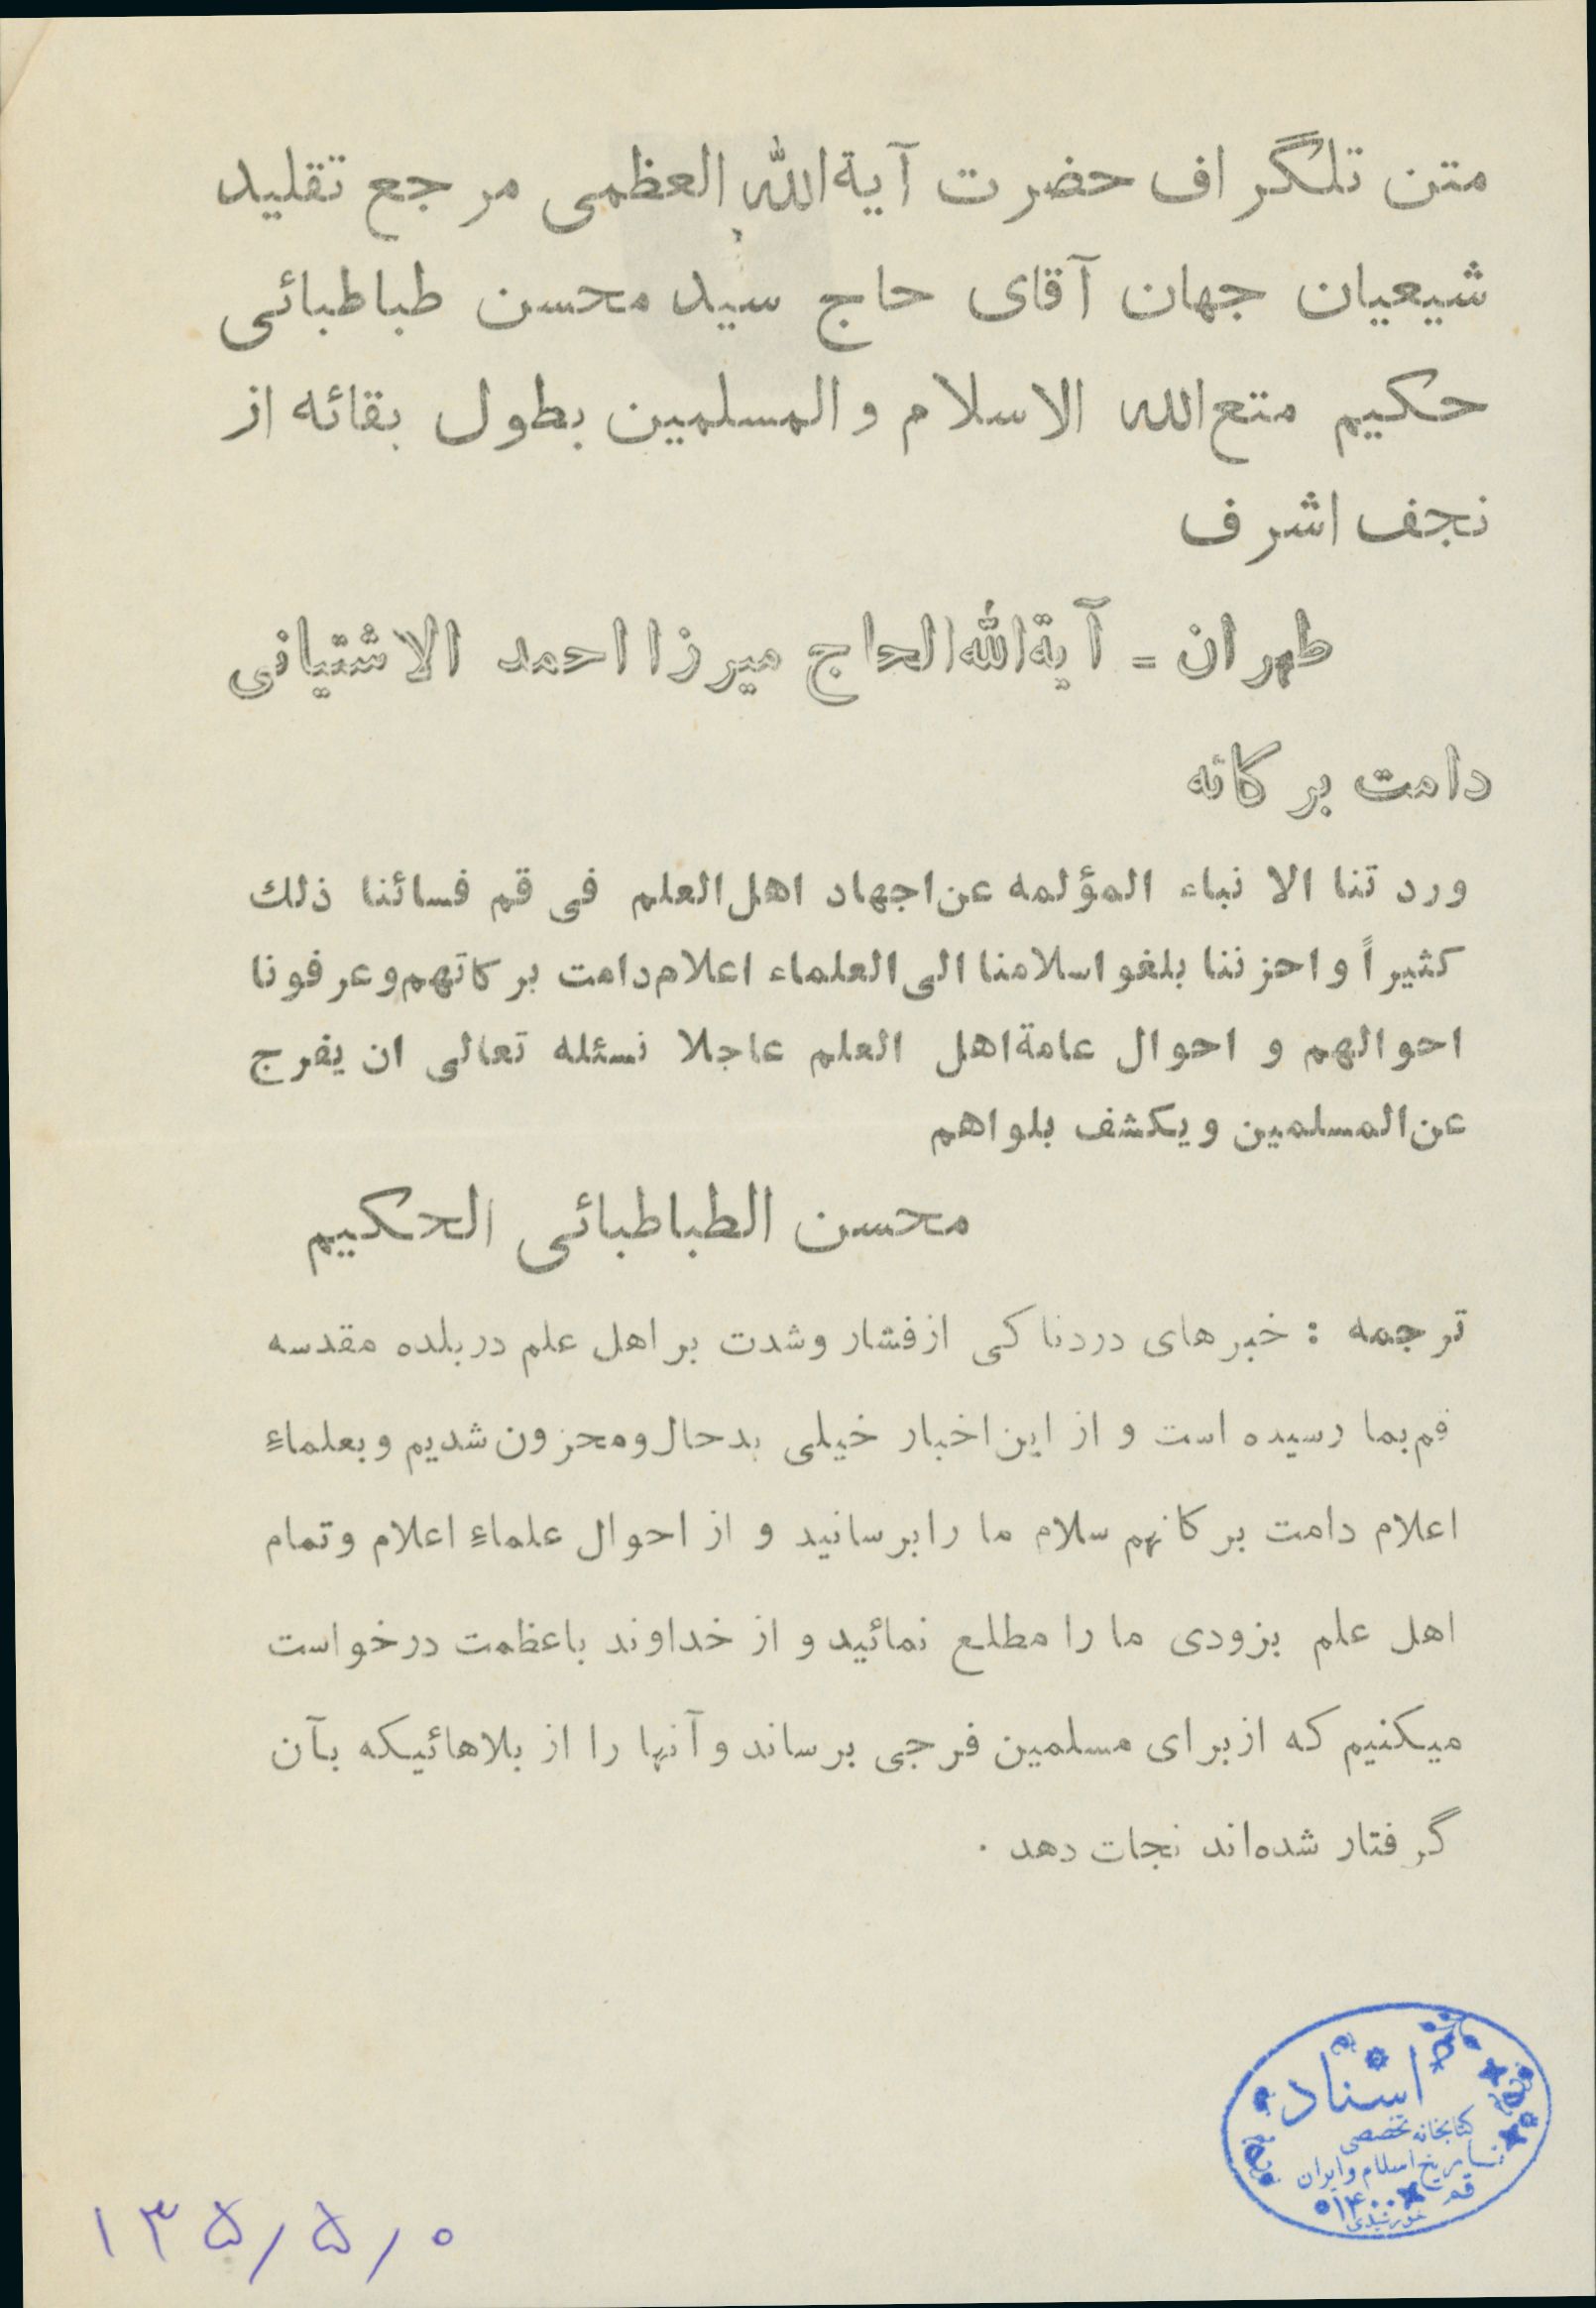 متن تلگراف حضرت آیةالله العظمی مرجع تقلید
شیعیان جهان آقای حاج سید محسن طباطبائی
حکیم متع‌الله الاسلام والمسلمین بطول بقائه از
نجف اشرف
طهران = آیةالله الحاج میرزا احمد الاشتیانی
دامت برکاته
وردتنا الانباء المؤلمه عن اجهاد اهل العلم فی قم فسائنا ذلك
کثیراً واحزننا بلغوا سلامنا الی العلماء اعلام دامت برکاتهم وعرفونا
احوالهم و احوال عامة اهل العلم عاجلا نسئله تعالی ان یفرج
عن المسلمین ویکشف بلواهم
محسن الطباطبائی الحکیم
ترجمه : خبرهای دردناکی از فشار وشدت بر اهل علم در بلده مقدسه
قم بما رسیده است و از این اخبار خیلی بدحال ومحزون شدیم وبعلماء
اعلام دامت برکاتهم سلام ما را برسانید و از احوال علماء اعلام وتمام
اهل علم بزودی ما را مطلع نمائید و از خداوند باعظمت درخواست
میکنیم که از برای مسلمین فرجی برساند وآنها را از بلاهائیکه بآن
گرفتار شده‌اند نجات دهد .
اسناد
کتابخانه تخصصی
تاریخ اسلام و ایران
قم ۱۴۰۰
۱۳۵/۵/۰